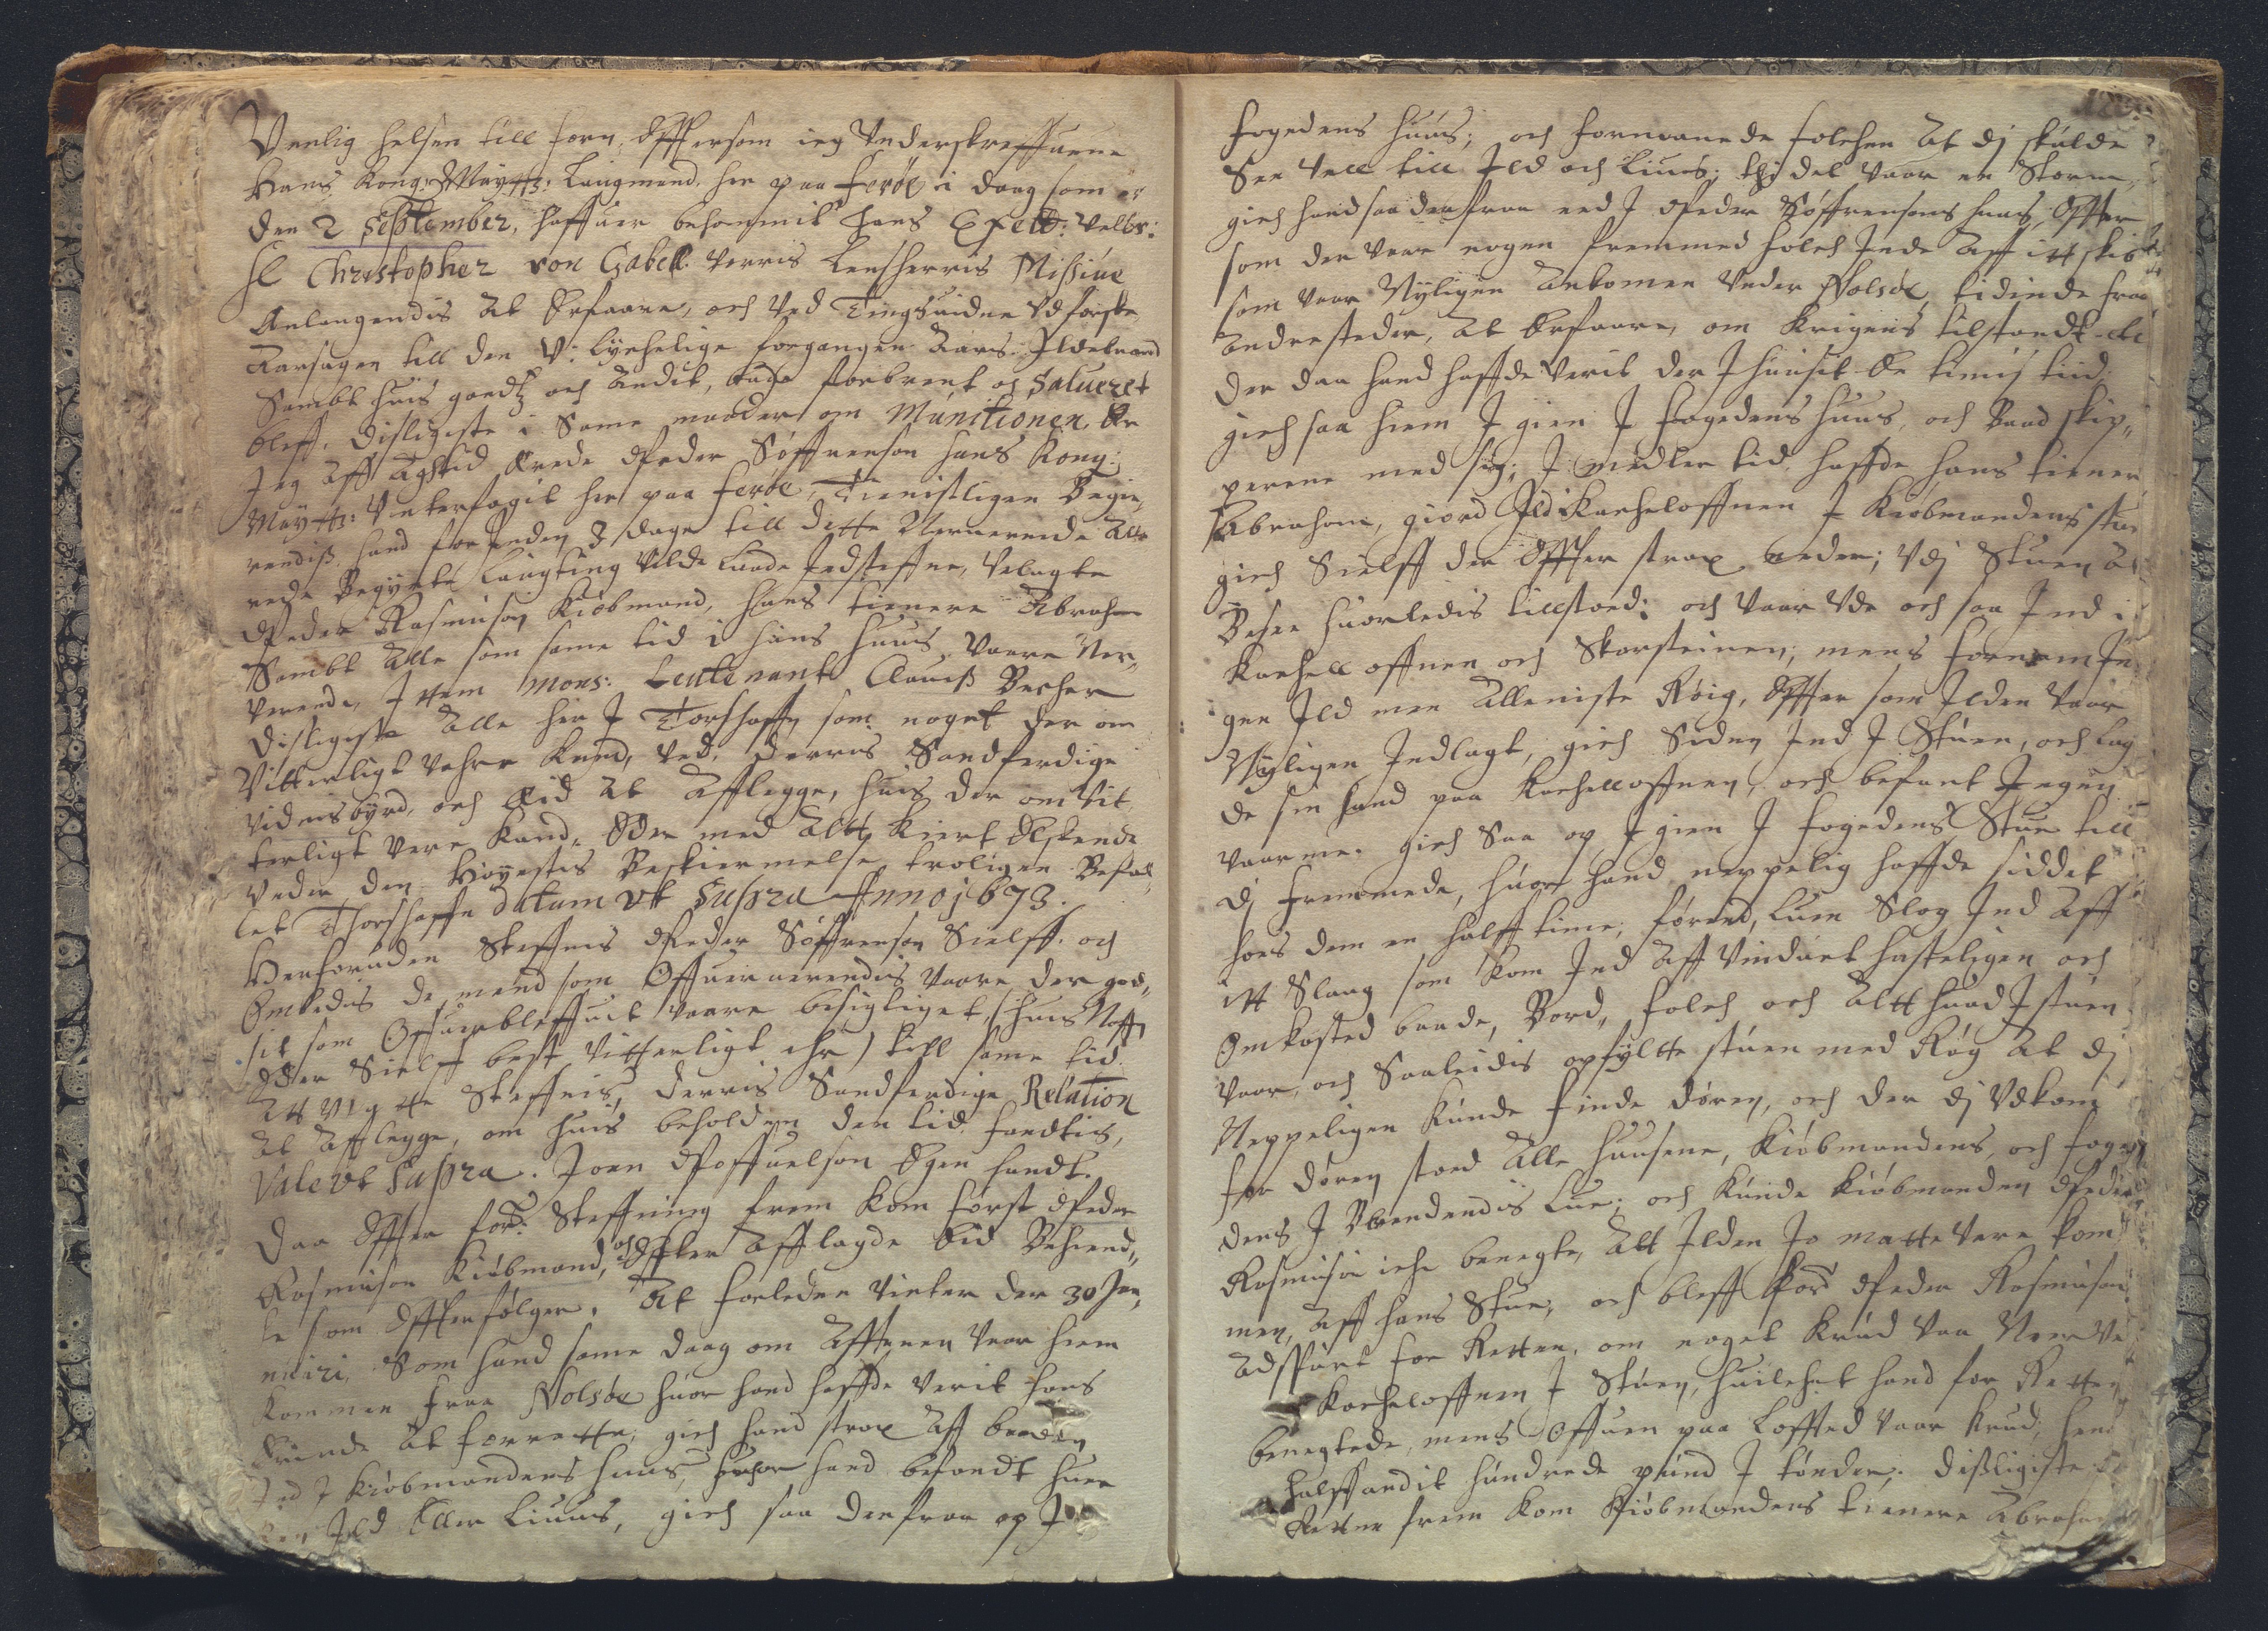 Venlig helsen till forn. Effersom ieg Underskreffuene
Hans Kong: Maÿtz: Laugmand her paa Ferøe i daag som er
den 2 September, haffuer bekommit hans Excell: Velbr:
hl Christopher von Gabell. Vorris Lensherris Missiue
Anlangendis at Erfaare, och Ved Tingsuidne Udforske
Aarsagen till den U: lyckelige forgangen Aars Ildebrand
Sambt huis goedtz och Andit, bode forbrent oc Salueret
bleff. Disligiste i Same maader om Munitionen. Er
Jeg Aff Agted Ærede Peder Søffrenson hans Kong:
Maÿtz: Underfogit her paa Ferøe, Tienistligen Begie,
rendis hand for Inden 3 dage till dette Neruerende Alle
rede Begynte Laugting Vilde Laade Indsteffne, Velagte
Peder Rasmuson Kiøbmand, hans tienere Abraham
Sambt Alle som same tid i hans huus Vaare Ner,
Verende, Item Mons: Leutenant Clauss Becher
Disligeste Alle her I Torshaffn som noget der om
Vitterligt Vehre Kand, Ved. Derris Sandferdige
Vidnisbyrd, och Eid at Afflegge, huis der om Vit
terligt Vere Kand. Eder med Alt Kiert Elskende
Under den Høyestes Beskiermelse troligen Befal,
let Thorshaffn datum Ut Supra Anno 1673.
Herforuden Steffnis Peder Søffrenson Sielff. och
Ombedis de mend som Offuerverendis Vaare der god,
sit som Offuerbleffuit Vaare besigtiget, (huis Naffn
Eder Sielff best Vitterligt ehr) till same tid
att møtte Steffnis, Derris Sandferdige Relation
At Afflegge, om huis beholden den tid fandtis,
Vale Ut Supra. Joen Poffuelson Egen handt.
Daa Effter for:ne Steffning frem kom først Peder
Rasmuson Kiøbmand, och Effter Afflagde Eid Bekiend,
te som Effterfølger. At forleden Vinter den 30 Jan,
nuari, Som hand same daag om Afftenen Vaar hiem
kommen fraa Nolsøe huor hand haffde Verit hans
Erinde At forrette, gich hand strax Aff baaden
Ind I Kiøbmandens huus, huor hand befandt huer
cken Ild Eller Liuus, gich saa derfraa op I
fogedens huus; och formanede folchen At dj skulde
See Vell till Ild och Liuus; thj det Vaar en Storm,
gich hand saa derfraa ned I Peder Søffrensens huus, Effter
som der Vaar nogen fremmed folch Inde Aff itt skib
som Vaar Nyligen Ankomen Under Nolsøe, tidinde fraa
Andresteder, At Erfaare, om Krigens tilstandt. etc
Der daa hand haffde Verit der I huusit En timis tid,
gich saa hiem I gien I fogedens huus, och Baad skip,,
perene med sig; I midler tid haffde hans tiener
Abraham, giord Ild i Kacheloffnen I Kiøbmandens stue
gich Sielff der Effter strax neder; Udj Stuen At
Besee huorledis tillstoed: och Vaar Ude och saa Ind i
Kachelloffnen och Skorsteinen; mens fornam In
gen Ild men Alleniste Røig, Effter som Ilden Vaar
Nyligen Indlagt, gich Siden Ind I Stuen, och lag
de sin hand paa Kachelloffnen, och befant Ingen
Vaarme. gich Saa op I gien I fogedens Stue till
dj fremmede, huor hand neppelig haffde siddet
hoes dem en halff time, førend, Luen Slog Ind Aff
itt Slaug som kom Ind Aff Vinduet hasteligen och
Omkasted baade, Bord, folch och Altt huad I stuen
Vaar, och Saaleidis opfyltte stuen med Røg At dj
Neppeligen Kunde finde døren, och der dj Udkom
for døren stoed Alle huusene, Kiøbmandens, och foge
dens I Brendendis Lue; och Kunde kiøbmanden Peder
Rasmuson icke benegte, Att Ilden Jo maatte Vere kom
men, Aff hans Stue, och bleff for:ne Peder Rasmuson
Adspurt for Retten, om noget Krud Vaar Ner Ved
Kacheloffnen I Stuen, huilchet hand for Retten
benegtede, mens Offuen paa Lofftet Vaar Krud, hen
halffandit hundrede pund I tønder. Disligiste
Retten frem kom Kiøbmandens tienere Abraham